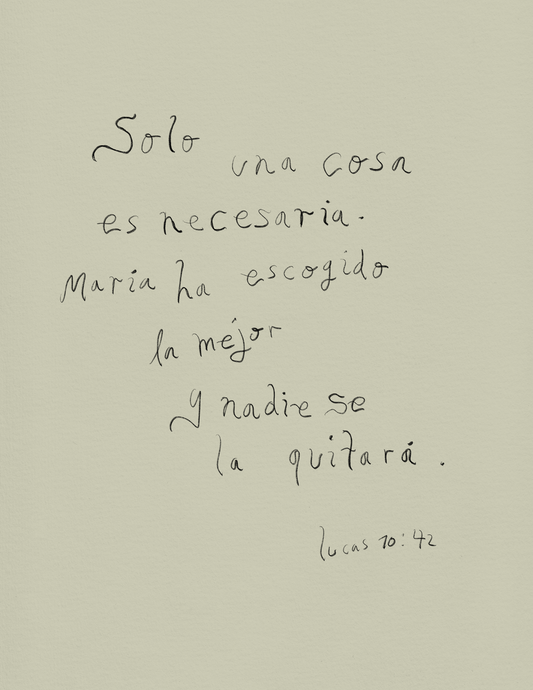 Solo una cosa
es necesaria.
María ha escogido
la mejor
y nadie se
la quitará.
Lucas 10:42